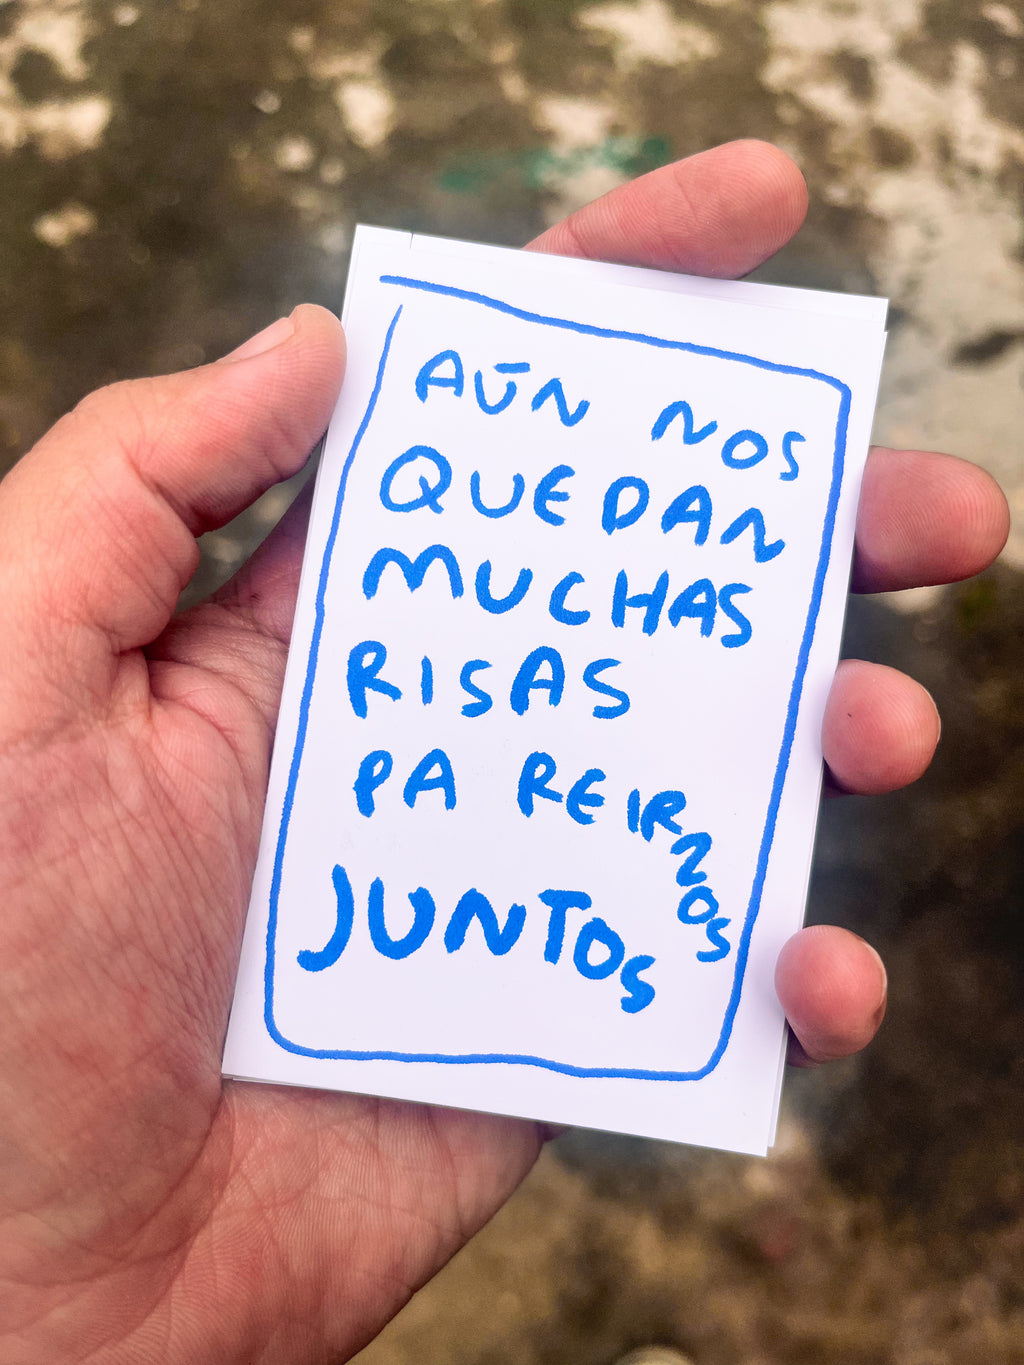 AÚN NOS
QUEDAN
MUCHAS
RISAS
PA REIRNOS
JUNTOS